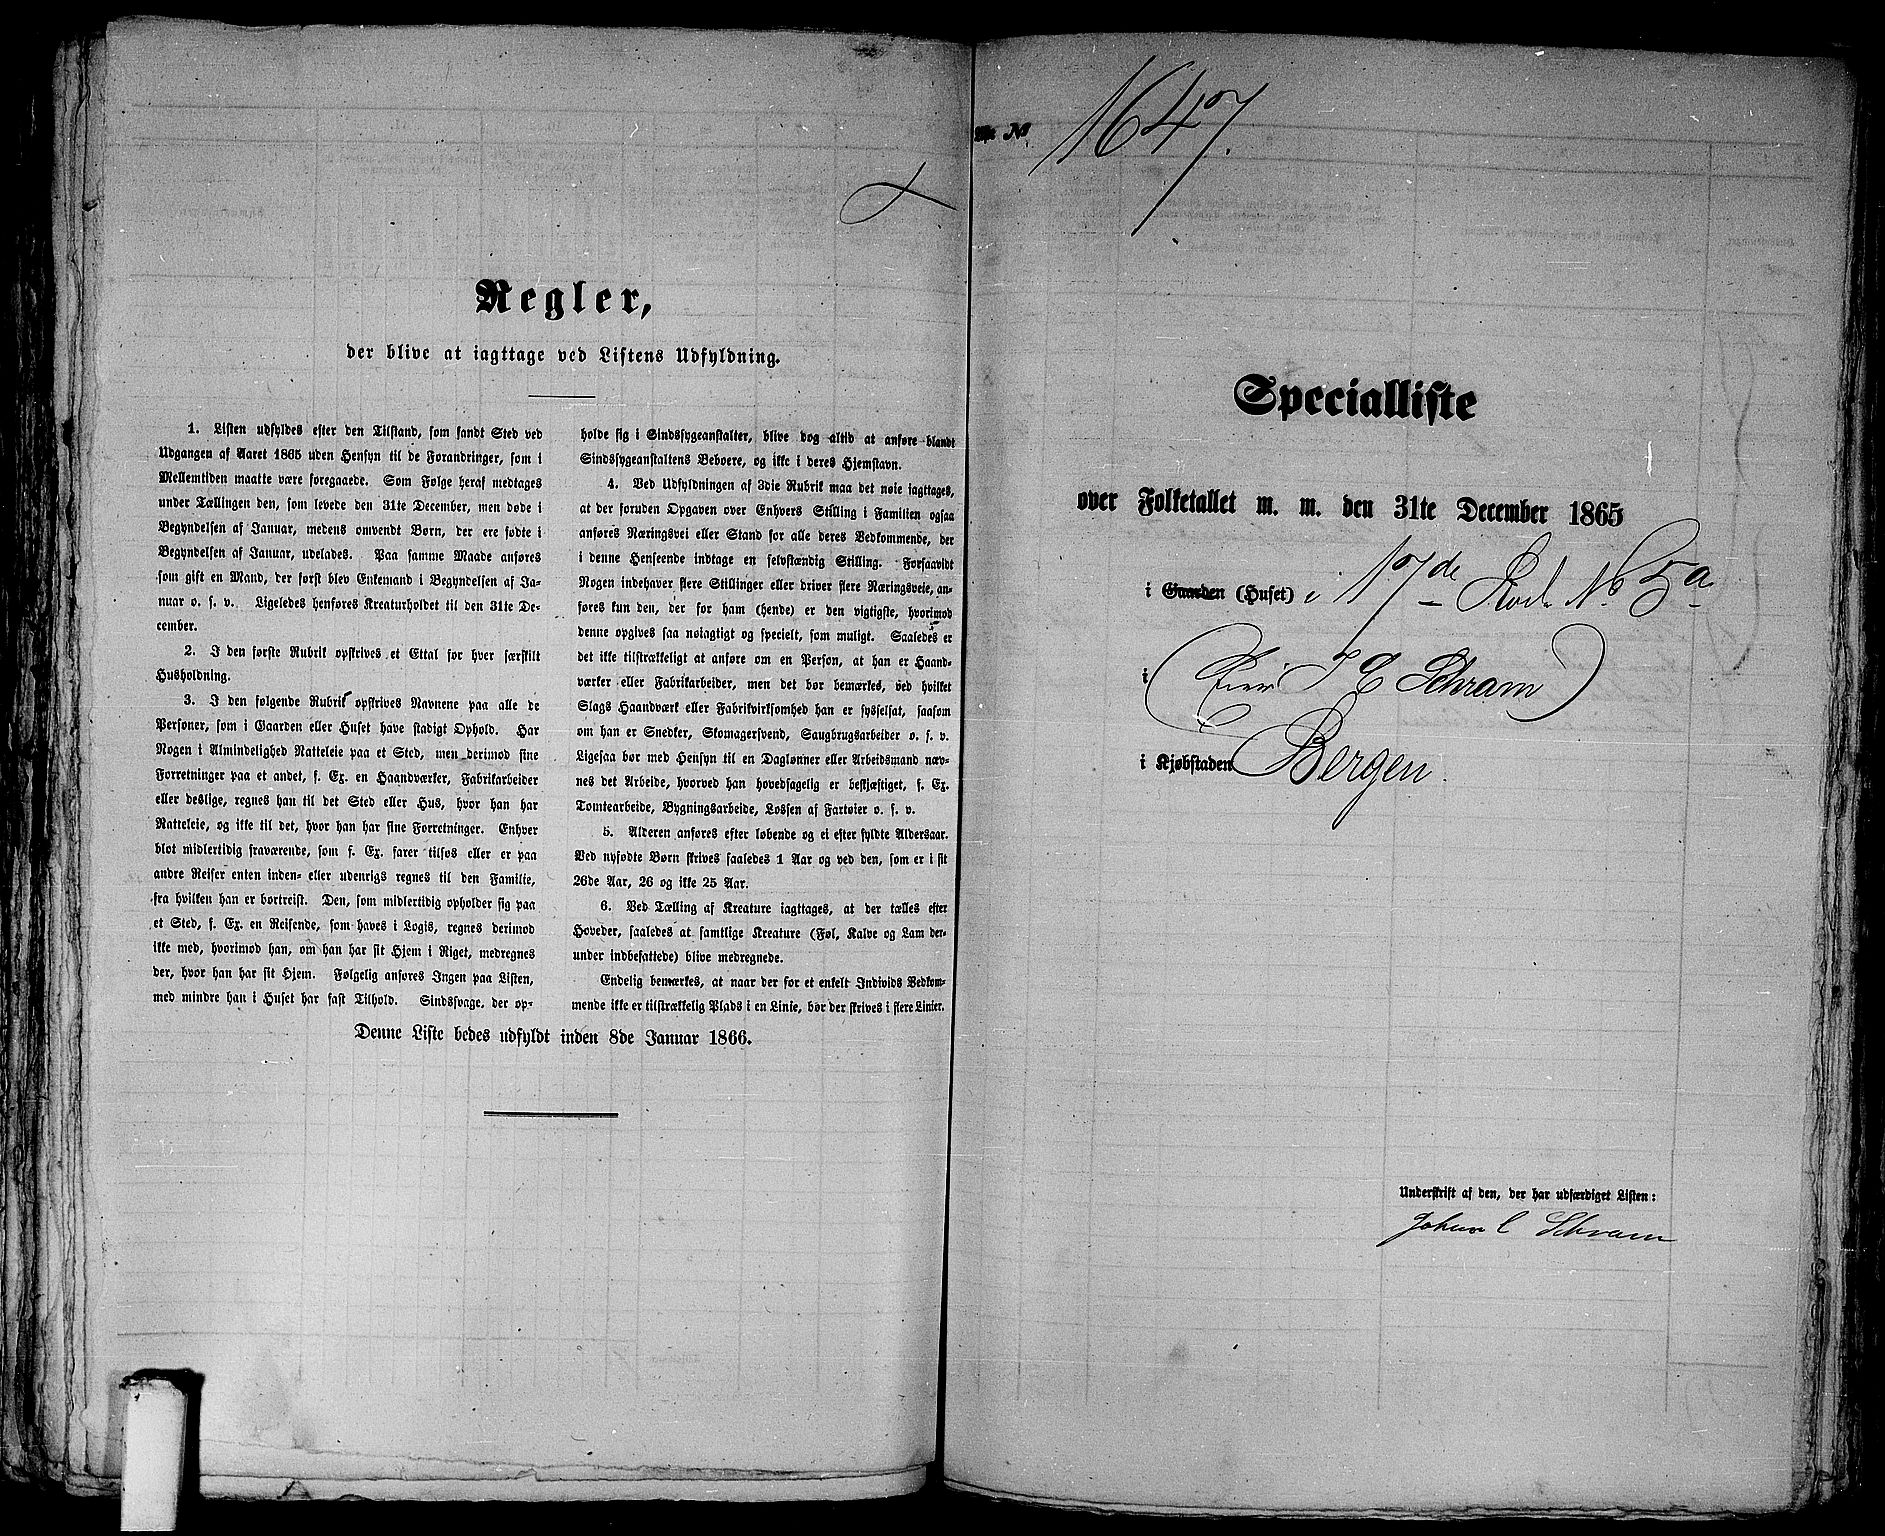 Regler,
der blive at iagttage ved Listens Udfyldning.
1. Listen udfyldes efter den Tilstand, som fandt Sted ved
Udgangen af Aaret 1865 uden Hensyn til de Forandringer, som i
Mellemtiden maatte være foregaaede. Som Følge heraf medtages
under Tællingen den, som levede den 31te December, men døde i
Begyndelsen af Januar, medens omvendt Børn, der ere fødte i
Begyndelsen af Januar, udelades. Paa samme Maade anføres
som gift en Mand, der først blev Enkemand i Begyndelsen af Ja-
nuar o. s. v. Ligeledes henføres Kreaturholdet til den 31te De-
cember.
2. I den første Rubrik opskrives et Ettal for hver særskilt
Husholdning.
3. I den følgende Rubrik opskrives Navnene paa alle de
Personer, som i Gaarden eller Huset have stadigt Ophold. Har
Nogen i Almindelighed Natteleie paa et Sted, men derimod sine
Forretninger paa et andet, f. Ex. en Haandværker, Fabrikarbeider
eller deslige, regnes han til det Sted eller Hus, hvor han har
Natteleie, og ikke til det, hvor han har sine Forretninger. Enhver
blot midlertidig fraværende, som f. Ex. farer tilsøs eller er paa
andre Reiser enten inden- eller udenrigs regnes til den Familie,
fra hvilken han er bortreist. Den, som midlertidig opholder sig paa
et Sted, f. Ex. en Reisende, som haves i Logis, regnes derimod
ikke med, hvorimod han, om han har sit Hjem i Riget, medregnes
der, hvor han har sit Hjem. Følgelig anføres Ingen paa Listen,
med mindre han i Huset har fast Tilhold. Sindssvage, der op-
holde sig i Sindssygeanstalter, blive dog altid at anføre blandt
Sindssygeanstaltens Beboere, og ikke i deres Hjemstavn.
4. Ved Udfyldningen af 3die Rubrik maa det nøie iagttages,
at der foruden Opgaven over Enhvers Stilling i Familien ogsaa
anføres Næringsvei eller Stand for alle deres Vedkommende, der
i denne Henseende indtage en selvstændig Stilling. Forsaavidt
Nogen indehaver flere Stillinger eller driver flere Næringsveie, an-
føres kun den, der for ham (hende) er den vigtigste, hvorimod
denne opgives saa nøiagtigt og specielt, som muligt. Saaledes er
det ikke tilstrækkeligt at anføre om en Person, at han er Haand-
værker eller Fabrikarbeider, men det bør bemærkes, ved hvilket
Slags Haandværk eller Fabrikvirksomhed han er sysselsat, saasom
om han er Snedker, Skomagersvend, Saugbrugsarbeider o. s. v.
Ligesaa bør med Hensyn til en Daglønner eller Arbeidsmand næv-
nes det Arbeide, hvorved han hovedsagelig er beskjæftiget, f. Ex.
Tomtearbeide, Bygningsarbeide, Lossen af Fartøier o. s. v.
5. Alderen anføres efter løbende og ei efter fyldte Aldersaar.
Ved nyfødte Børn skrives saaledes 1 Aar og ved den, som er i sit
26de Aar, 26 og ikke 25 Aar.
6. Ved Tælling af Kreature iagttages, at der tælles efter
Hoveder, saaledes at samtlige Kreature (Føl, Kalve og Lam der-
under indbefattede) blive medregnede.
Endelig bemærkes, at naar der for et enkelt Individs Vedkom-
mende ikke er tilstrækkelig Plads i en Linie, bør der skrives i flere Linier.
Denne Liste bedes udfyldt inden 8de Januar 1866.
No 1647.
Specialliste
over Folketallet m. m. den 31te December 1865
i Gaarden (Huset) i 17de Rod. No 5a
i (Eier J C Schram)
i Kjøbstaden Bergen.
Underskrift af den, der har udfærdiget Listen:
Johan C Schram